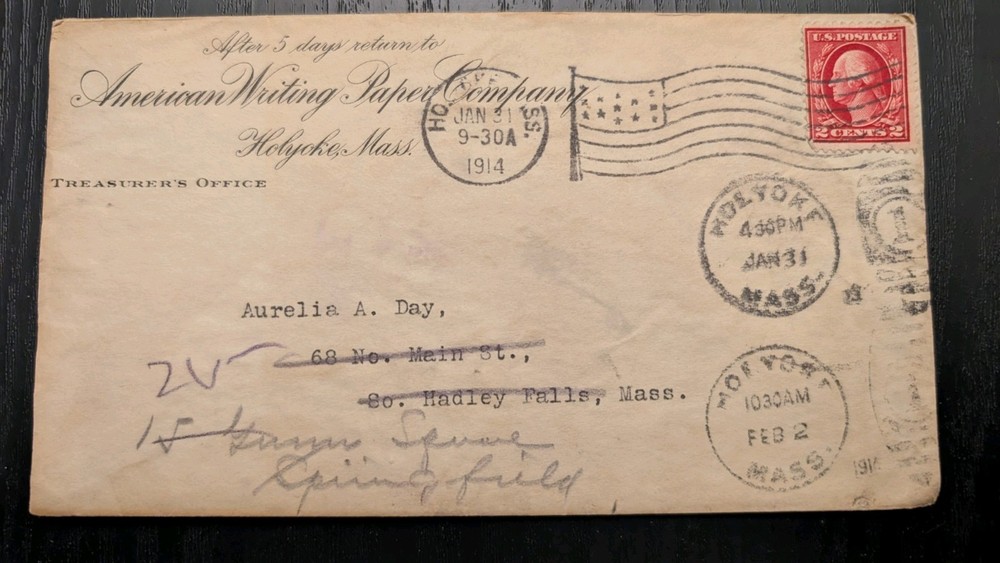 After 5 days return to
American Writing Paper Company
Holyoke, Mass.
TREASURER'S OFFICE
HOLYOKE MASS.
JAN 31
9-30A
1914
U.S. POSTAGE
2 CENTS 2
HOLYOKE
430PM
JAN 31
MASS.
1
Aurelia A. Day,
68 No. Main St.,
So. Hadley Falls, Mass.
15
Square
Springfield
HOLYOKE
1030AM
FEB 2
MASS.
1914